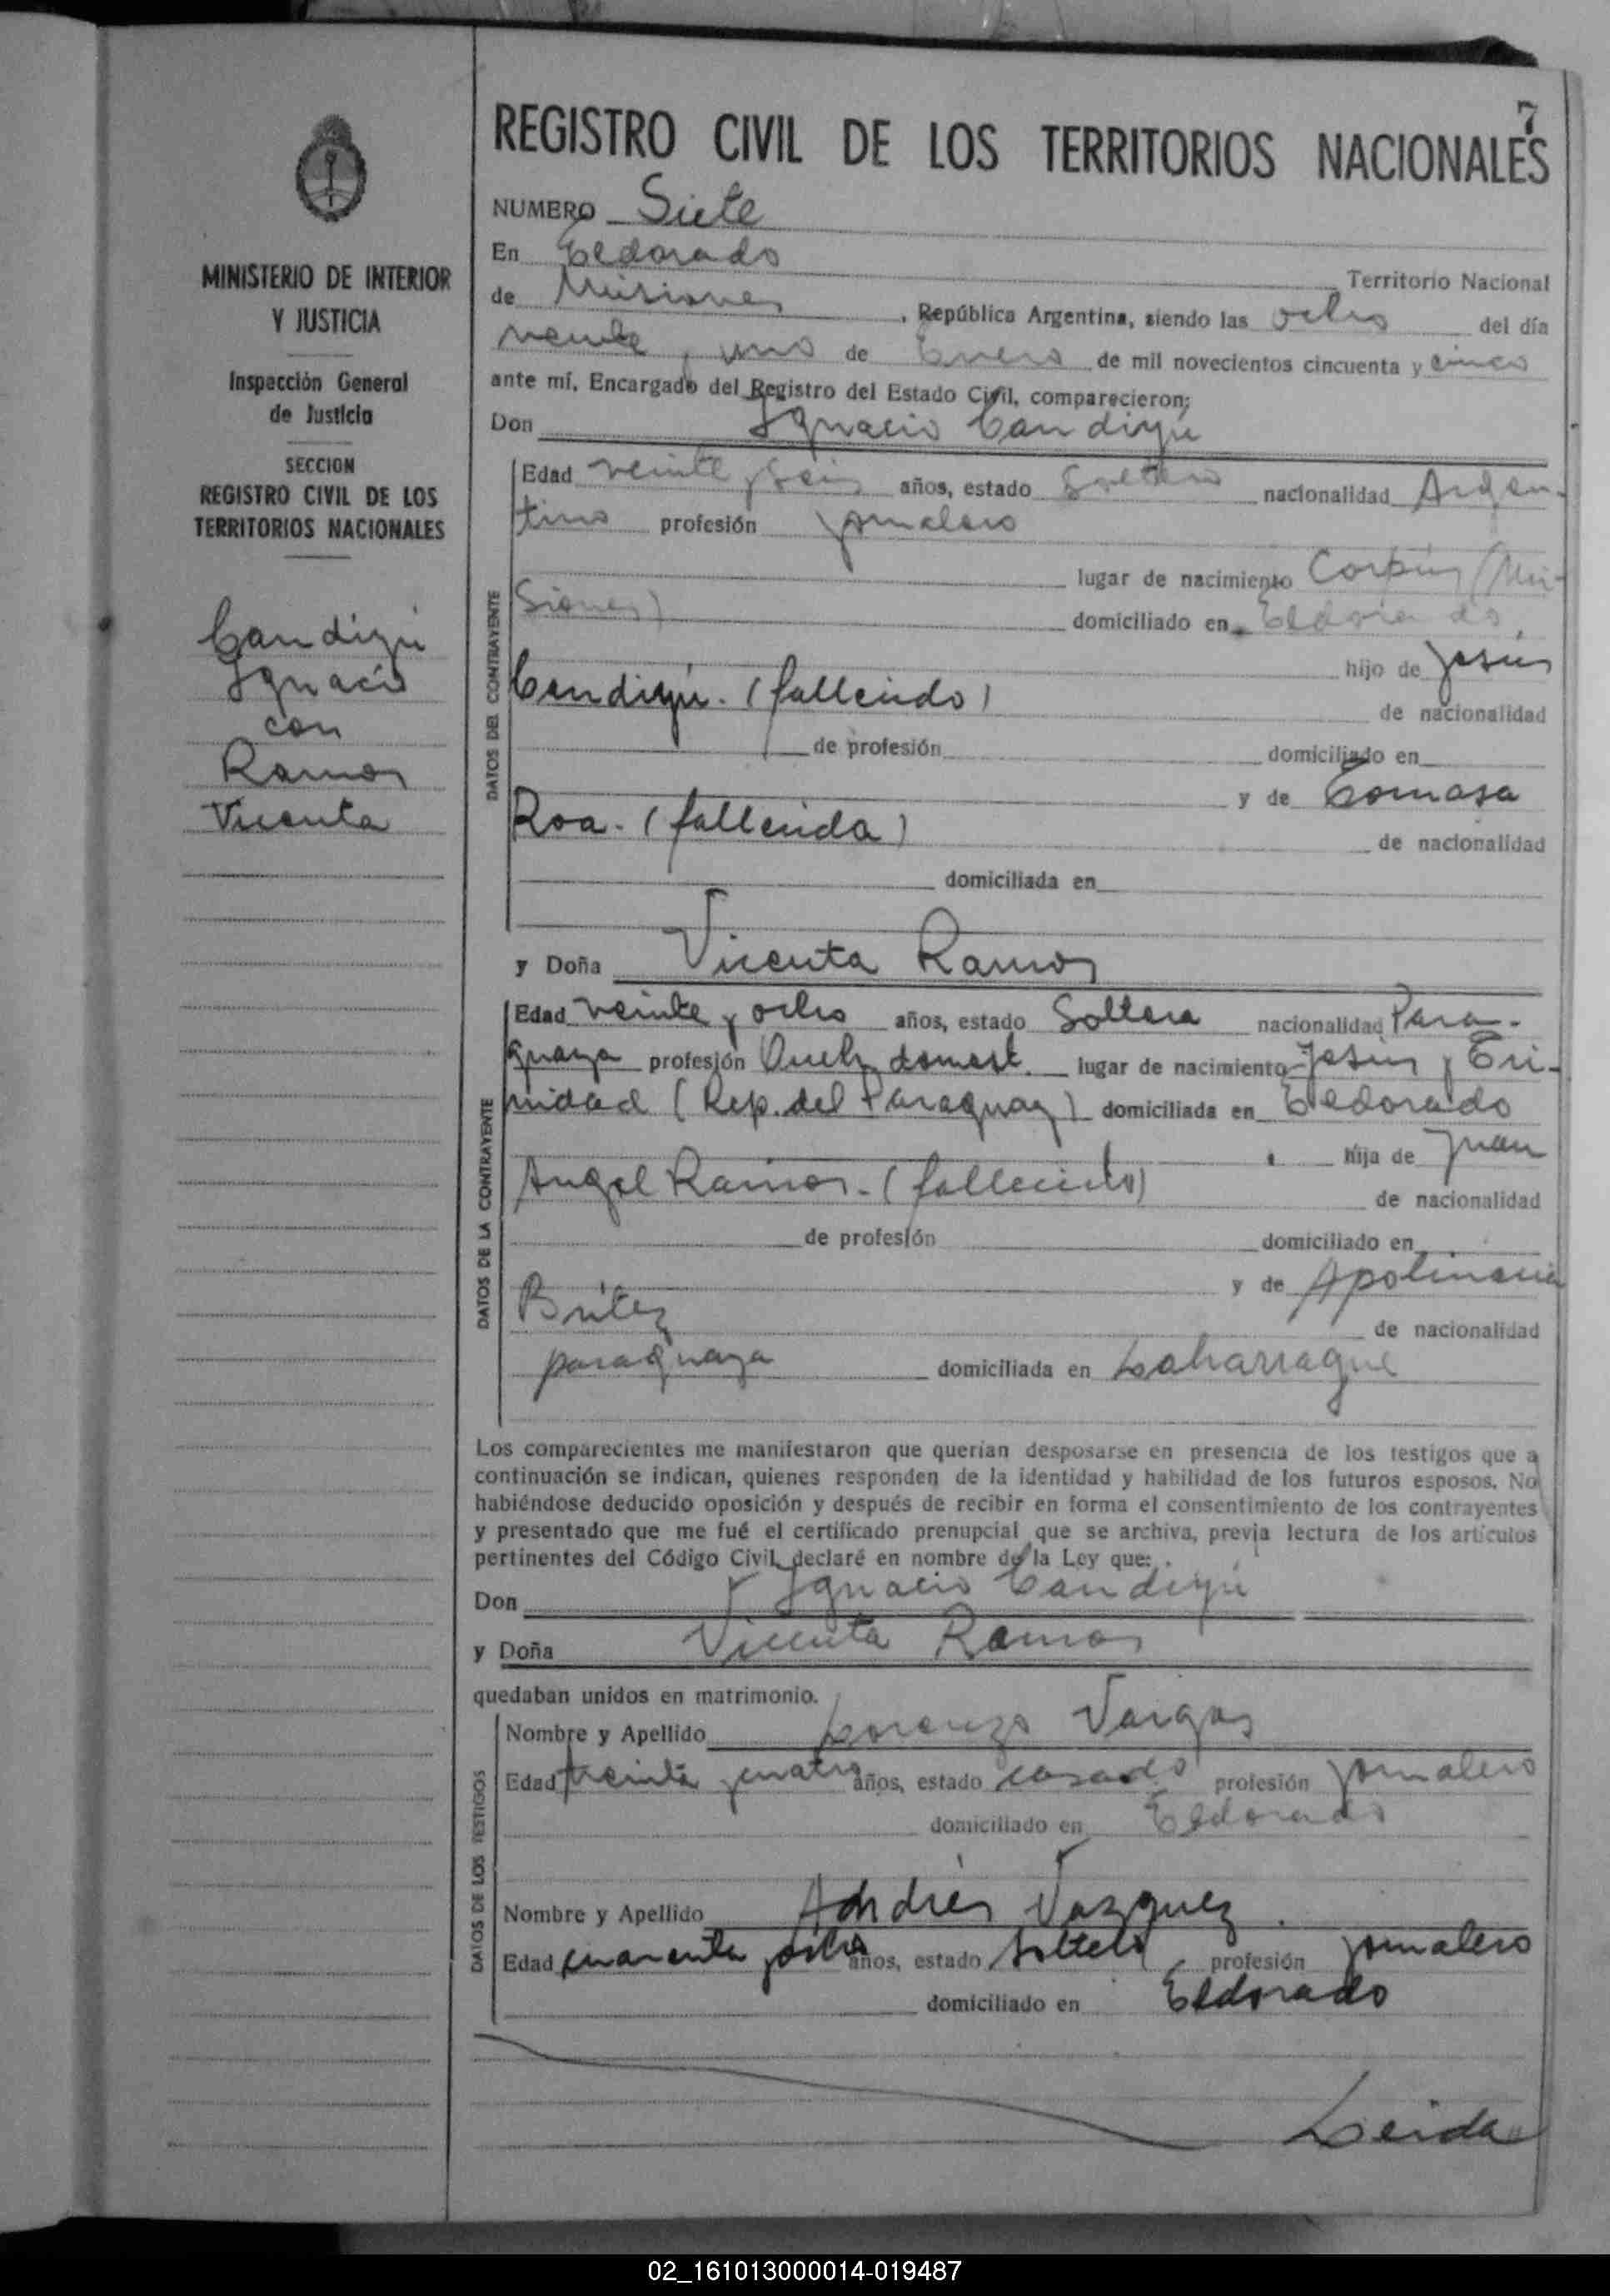 7
REGISTRO CIVIL DE LOS TERRITORIOS NACIONALES
MINISTERIO DE INTERIOR
Y JUSTICIA
Inspección General
de Justicia
SECCION
REGISTRO CIVIL DE LOS
TERRITORIOS NACIONALES
Candiyú
Ignacio
con
Ramos
Vicenta
NUMERO Siete
En Eldorado Territorio Nacional
de Misiones, República Argentina, siendo las ocho del día
veinte y uno de Enero de mil novecientos cincuenta y cinco
ante mí, Encargado del Registro del Estado Civil, comparecieron:
Don Ignacio Candiyú
DATOS DEL CONTRAYENTE
Edad veinte y seis años, estado Soltero nacionalidad Argen-
tino profesión jornalero
lugar de nacimiento Corpus (Mi-
siones) domiciliado en Eldorado,
hijo de Jesús
Candiyú. (fallecido) de nacionalidad
de profesión domiciliado en
y de Tomasa
Roa. (fallecida) de nacionalidad
domiciliada en
y Doña Vicenta Ramos
DATOS DE LA CONTRAYENTE
Edad veinte y ocho años, estado Soltera nacionalidad Para-
guaya profesión Queh. domest. lugar de nacimiento Jesús y Tri-
nidad (Rep. del Paraguay) domiciliada en Eldorado
hija de Juan
Angel Ramos. (fallecido) de nacionalidad
de profesión domiciliado en
y de Apolinaria
Britez de nacionalidad
paraguaya domiciliada en Laharrague
Los comparecientes me manifestaron que querían desposarse en presencia de los testigos que a
continuación se indican, quienes responden de la identidad y habilidad de los futuros esposos. No
habiéndose deducido oposición y después de recibir en forma el consentimiento de los contrayentes
y presentado que me fué el certificado prenupcial que se archiva, previa lectura de los artículos
pertinentes del Código Civil, declaré en nombre de la Ley que:
Don Ignacio Candiyú
y Doña Vicenta Ramos
quedaban unidos en matrimonio.
DATOS DE LOS TESTIGOS
Nombre y Apellido Lorenzo Vargas
Edad treinta y cuatro años, estado casado profesión jornalero
domiciliado en Eldorado
Nombre y Apellido Andrés Vazquez
Edad cuarenta y ocho años, estado soltero profesión jornalero
domiciliado en Eldorado
Leida
02_161013000014-019487